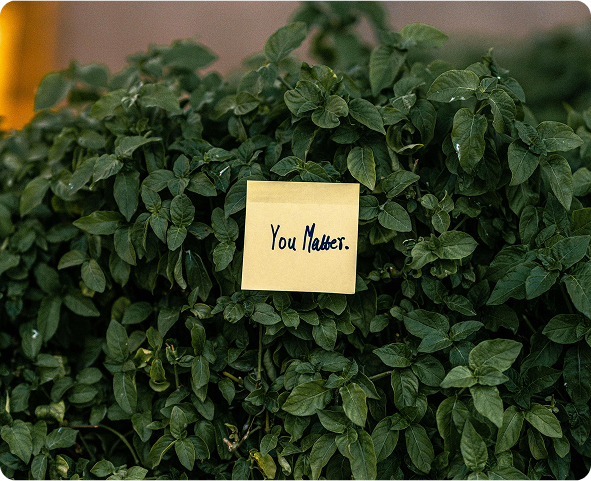 You Matter.